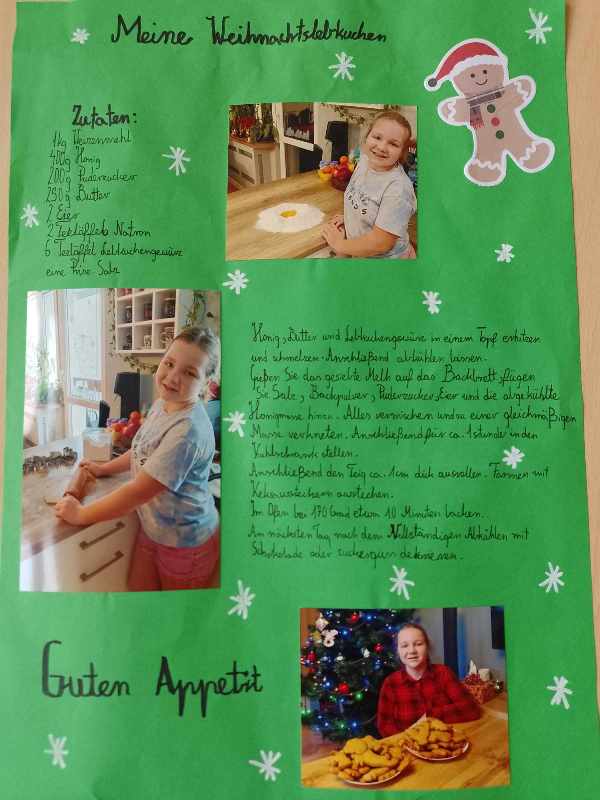 Meine Weihnachtslebkuchen
Zutaten:
1kg Weizenmehl
400g Honig
200g Puderzucker
250g Butter
2 Eier
2 Teelöffels Natron
6 Teelöffel Lebkuchengewürz
eine Prise Salz
Honig, Butter und Lebkuchengewürze in einem Topf erhitzen
und schmelzen. Anschließend abkühlen lassen.
Geben Sie das gesiebte Mehl auf das Backbrett, fügen
Sie Salz, Backpulver, Puderzucker, Eier und die abgekühlte
Honigmasse hinzu. Alles vermischen und zu einer gleichmäßigen
Masse verkneten. Anschließend für ca. 1 stunde in den
Kühlschrank stellen.
Anschließend den Teig ca. 1cm dick ausrollen. Formen mit
Keksausstechern ausstechen.
Im Ofen bei 170 Grad etwa 10 Minuten backen.
Am nächsten Tag nach dem Vollständigen Abkühlen mit
Schokolade oder zuckerguss
Guten Appetit